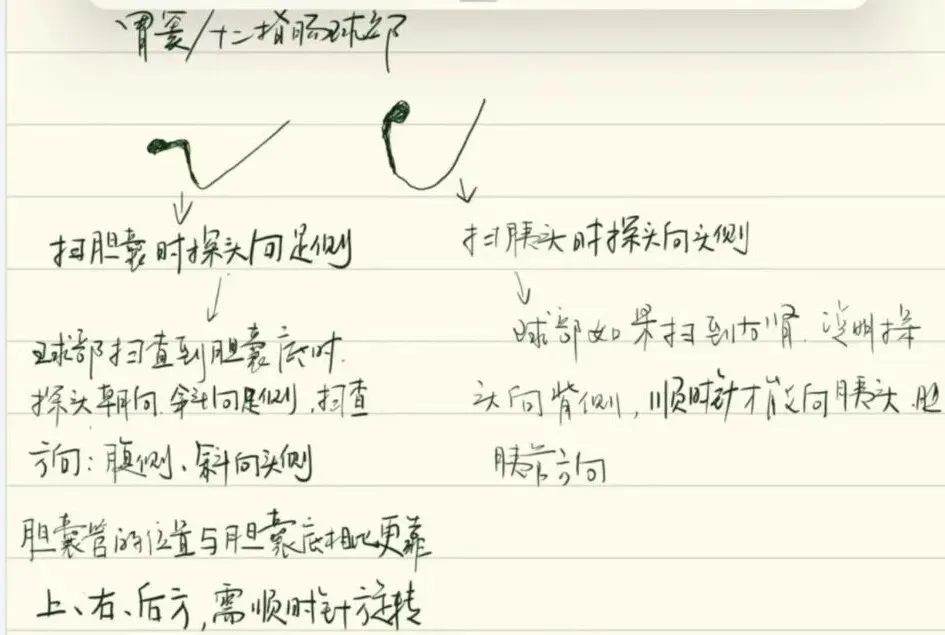 胃窦/十二指肠球部
扫胆囊时探头向足侧
扫胰头时探头向头侧
球部扫查到胆囊底时.
探头朝向.斜向足侧,扫查
方向:腹侧、斜向头侧
球部如果扫到右肾.说明探
头向背侧,顺时针才能向胰头.胆
胰管方向
胆囊管的位置与胆囊底相比更靠
上、右、后方,需顺时针旋转